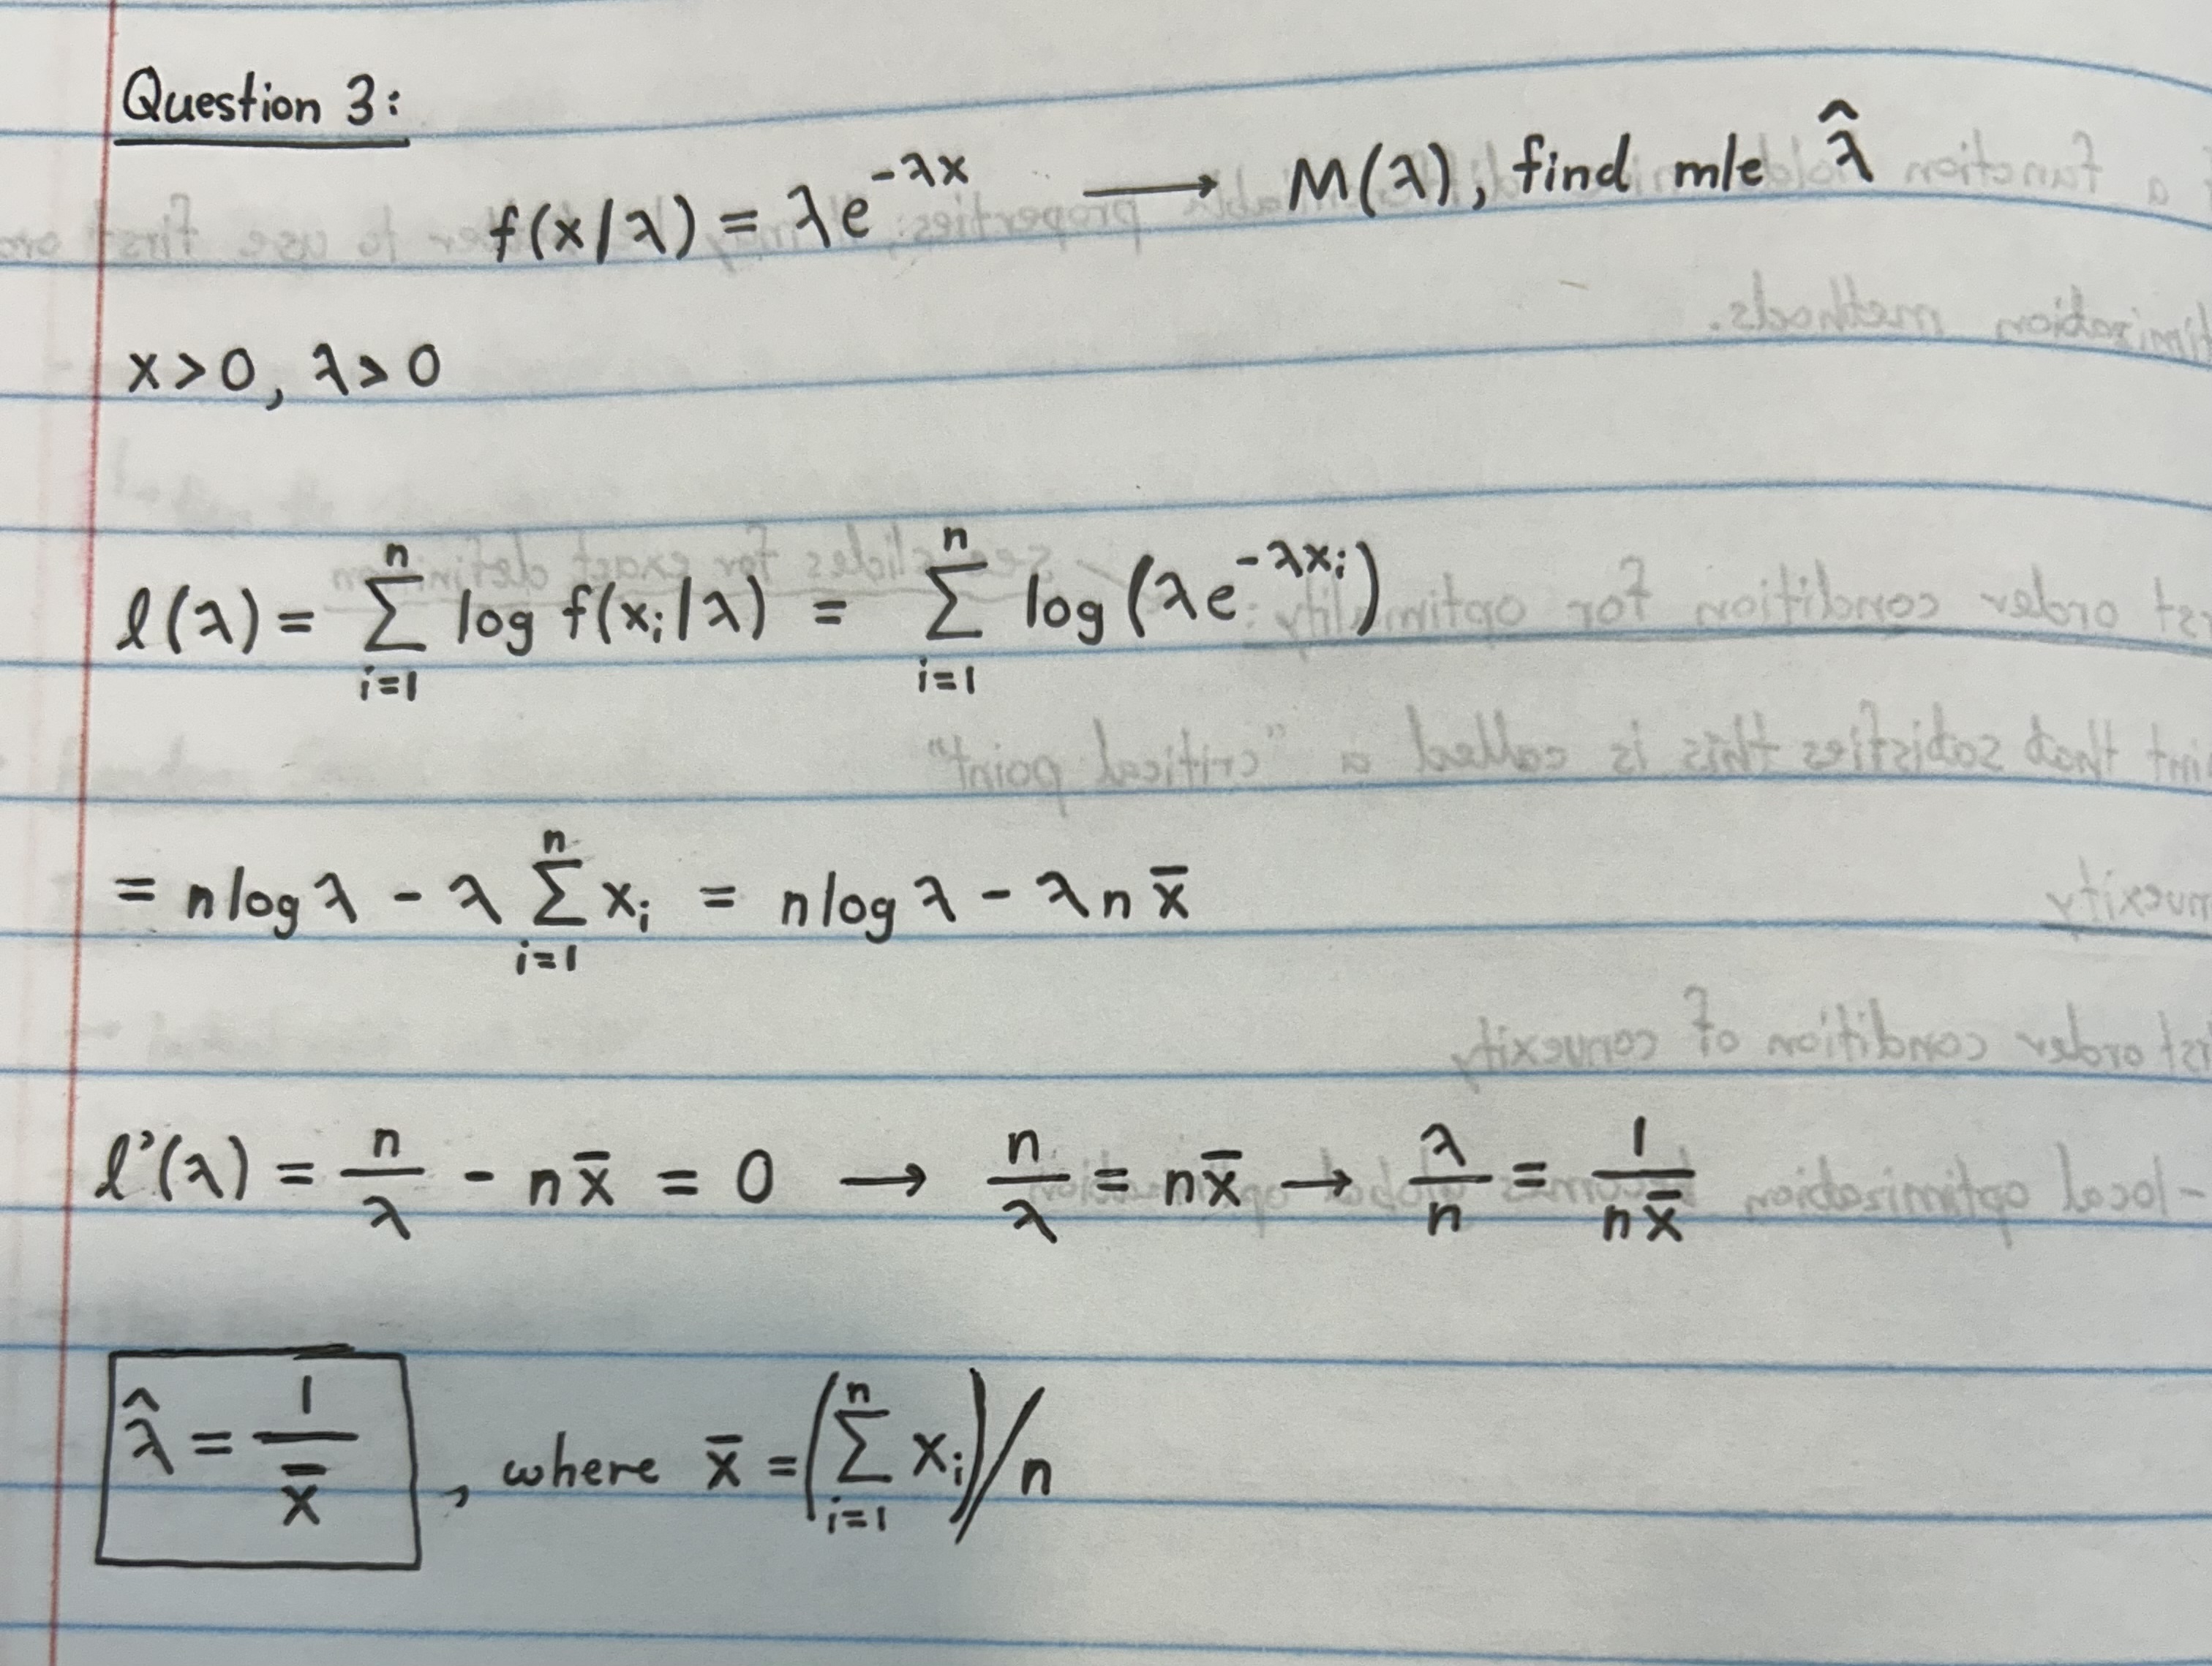 Question 3:
f(x/λ) = λe^{-λx} → M(λ), find mle λ̂
x > 0, λ > 0
ℓ(λ) = ∑_{i=1}^{n} log f(x_i/λ) = ∑_{i=1}^{n} log(λe^{-λx_i})
= n log λ - λ ∑_{i=1}^{n} x_i = n log λ - λ n x̄
ℓ'(λ) = n/λ - n x̄ = 0 → n/λ = n x̄ → λ/n = 1/(n x̄)
λ̂ = 1/x̄, where x̄ = (∑_{i=1}^{n} x_i)/n